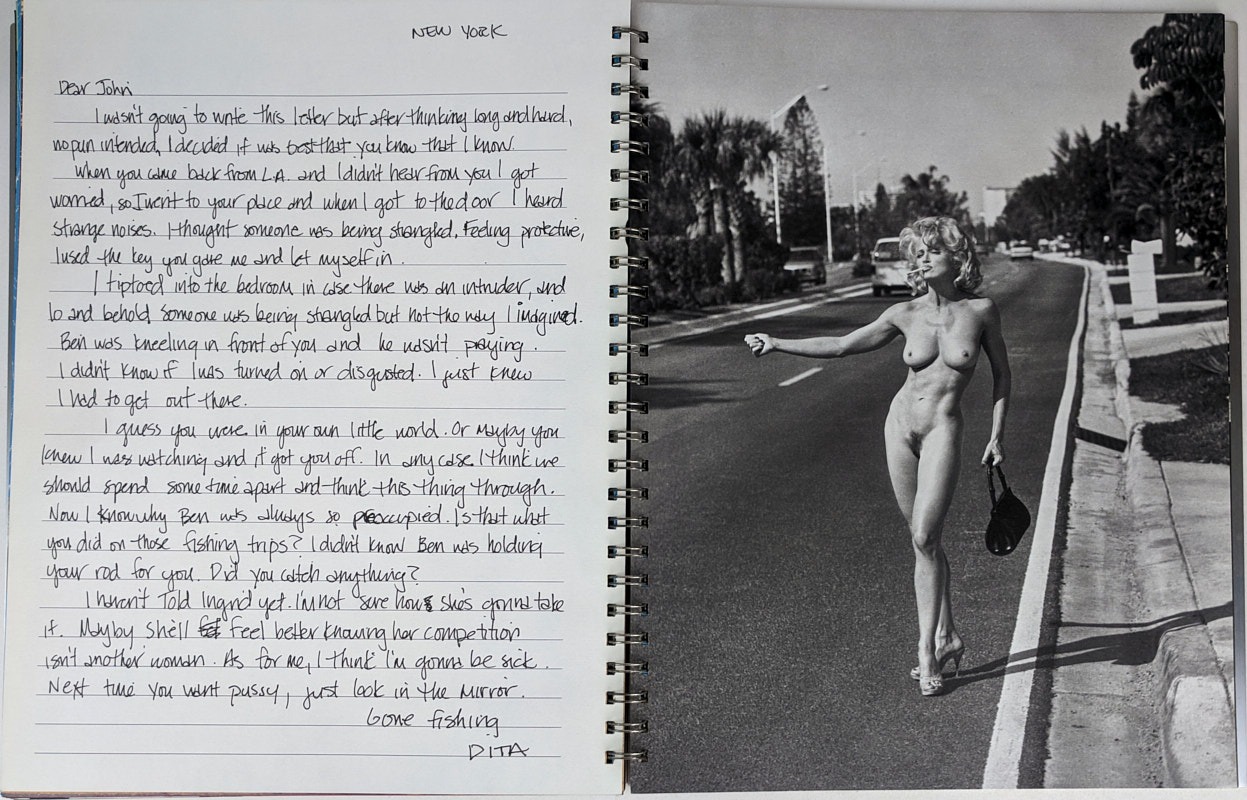 NEW YORK
Dear John
I wasn't going to write this letter but after thinking long and hard,
no pun intended, I decided it was best that you know that I know.
When you came back from L.A. and I didn't hear from you I got
worried, so I went to your place and when I got to the door I heard
strange noises. I thought someone was being strangled. Feeling protective,
I used the key you gave me and let myself in.
I tiptoed into the bedroom in case there was an intruder, and
lo and behold someone was being strangled but not the way I imagined.
Ben was kneeling in front of you and he wasn't praying.
I didn't know if I was turned on or disgusted. I just knew
I had to get out there.
I guess you were in your own little world. Or Mayby you
knew I was watching and it got you off. In any case I think we
should spend some time apart and think this thing through.
Now I know why Ben was always so preoccupied. Is that what
you did on those fishing trips? I didn't know Ben was holding
your rod for you. Did you catch anything?
I haven't Told Ingrid yet. I'm not sure how she's gonna take
it. Mayby she'll feel better knowing her competition
isn't another woman. As for me, I think I'm gonna be sick.
Next time you want pussy, just look in the mirror.
Gone fishing
DITA